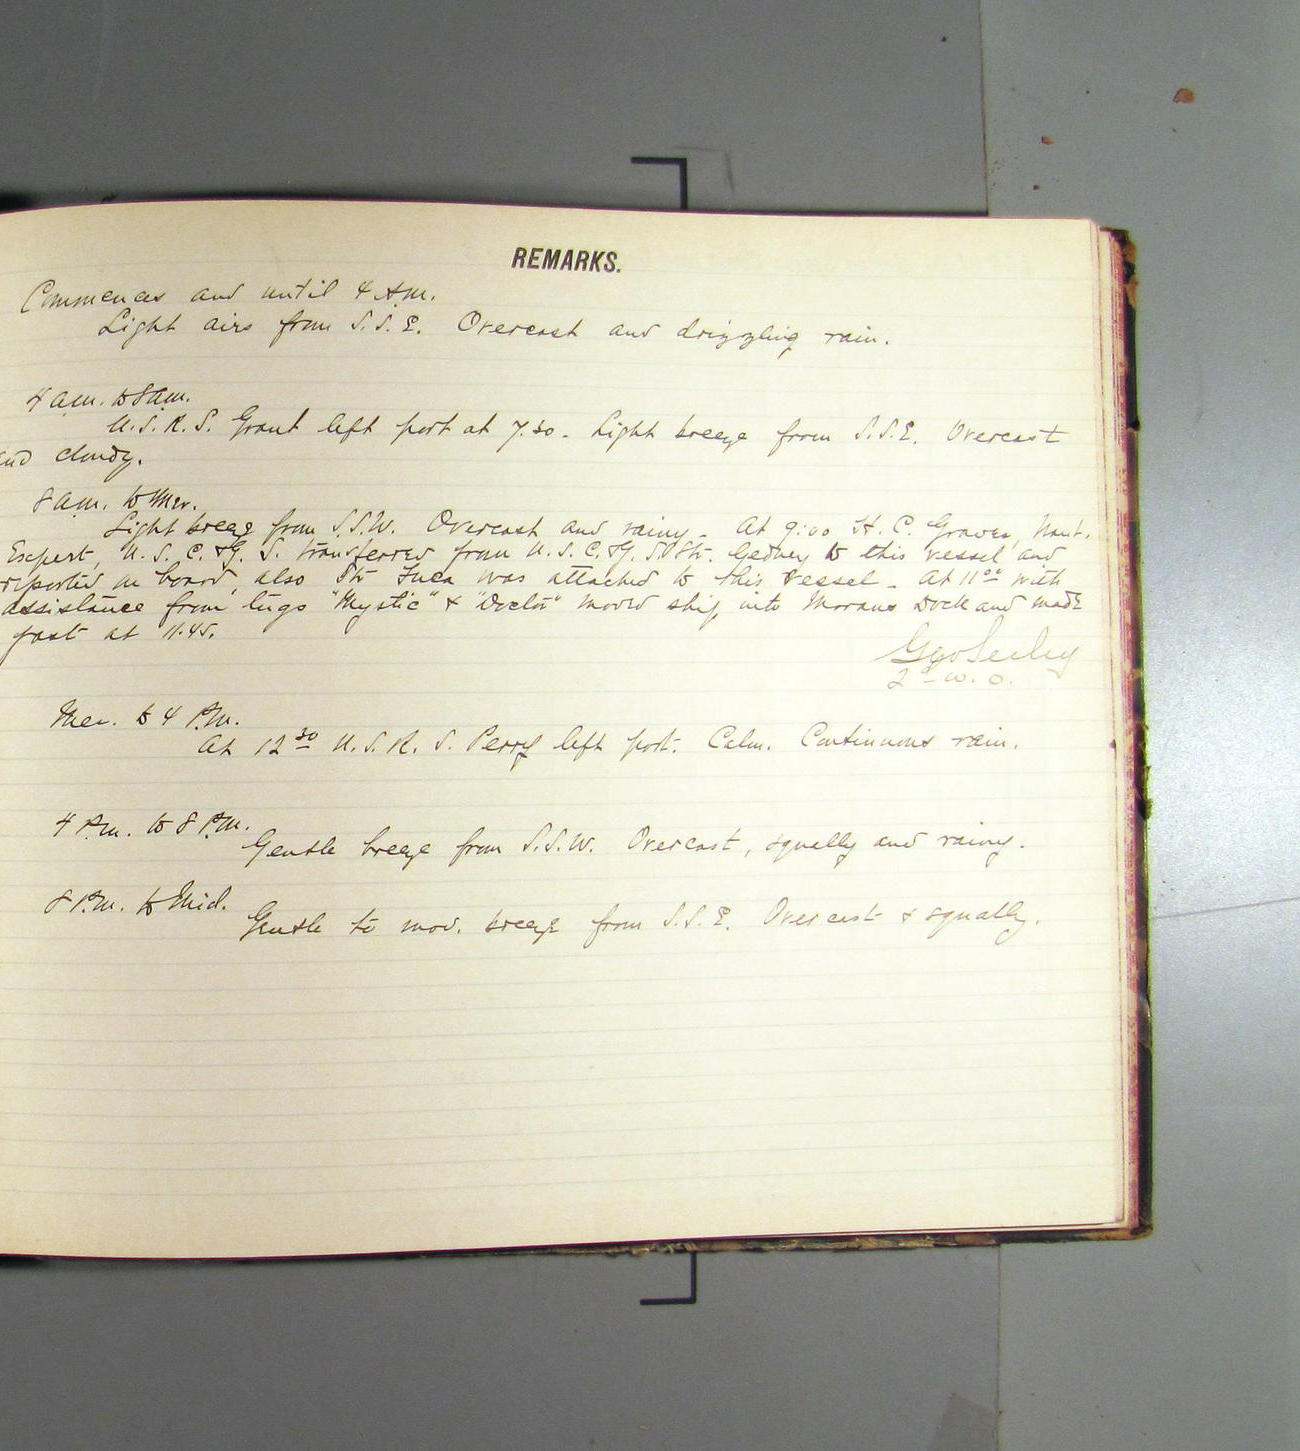 REMARKS.
Commences and until 4 A.m.
Light airs from S.S.E. Overcast and drizzling rain.
4 a.m. to 8 a.m.
U.S.R.S. Grant left port at 7.30. Light breeze from S.S.E. Overcast
and cloudy.
8 a.m. to Mer.
Light breeze from S.S.W. Overcast and rainy. At 9:00 H. C. Graves, Naut.
Expert, U.S.C.&G. S. transferred from U.S.C.&G. S. Str. Gedney to this vessel and
reported on board, also Str Fuca was attached to this vessel. At 11 00 with
assistance from tugs "Mystic" & "Doctor" moved ship into Morans Dock and made
fast at 11.45.
Geo Seeley
2d W. O.
Mer. to 4 P.m.
At 12 30 U.S.R.S. Perry left port. Calm. Continuous rain.
4 P.m. to 8 P.m.
Gentle breeze from S.S.W. Overcast, squally and rainy.
8 P.m. to Mid.
Gentle to mod. breeze from S.S.E. Overcast & squally.